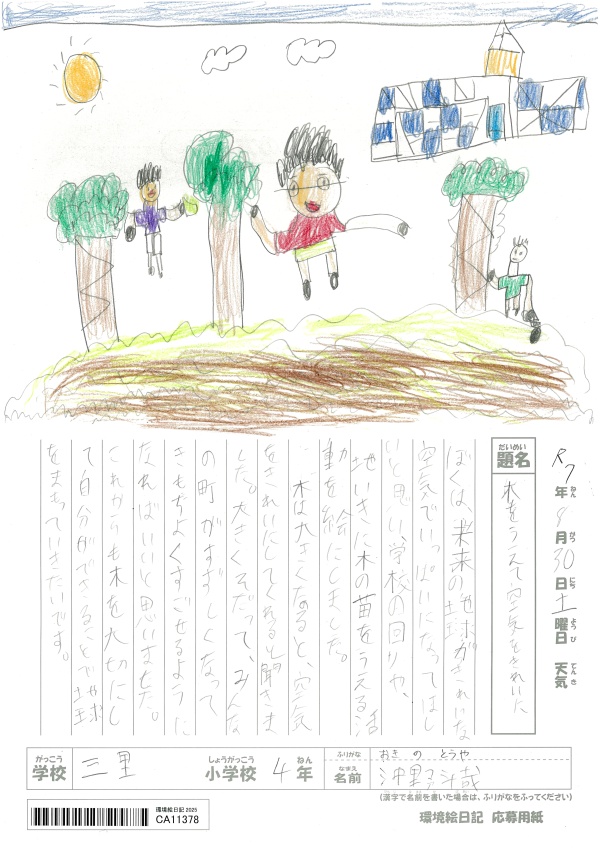 R7年8月30日土曜日 天気
ねん がつ にち ようび てんき
だいめい
題名
木をうえて空気をきれいに
ぼくは、未来の地球がきれいな
空気でいっぱいになってほし
いと思い、学校の回りや、
地いきに木の苗をうえる活
動を絵にしました。
木は大きくなると、空気
をきれいにしてくれると聞きま
した。大きくそだって、みんな
の町がすずしくなって、
きもちよくすごせるように
なればいいと思いました。
これからも木を大切にし
て自分ができることで地球
をまもっていきたいです。
がっこう しょうがっこう ねん ふりがな おきの とうや
学校 三里 小学校 4年 なまえ 名前 沖野斗哉
(漢字で名前を書いた場合は、ふりがなをふってください)
環境絵日記 2025
CA11378
環境絵日記 応募用紙